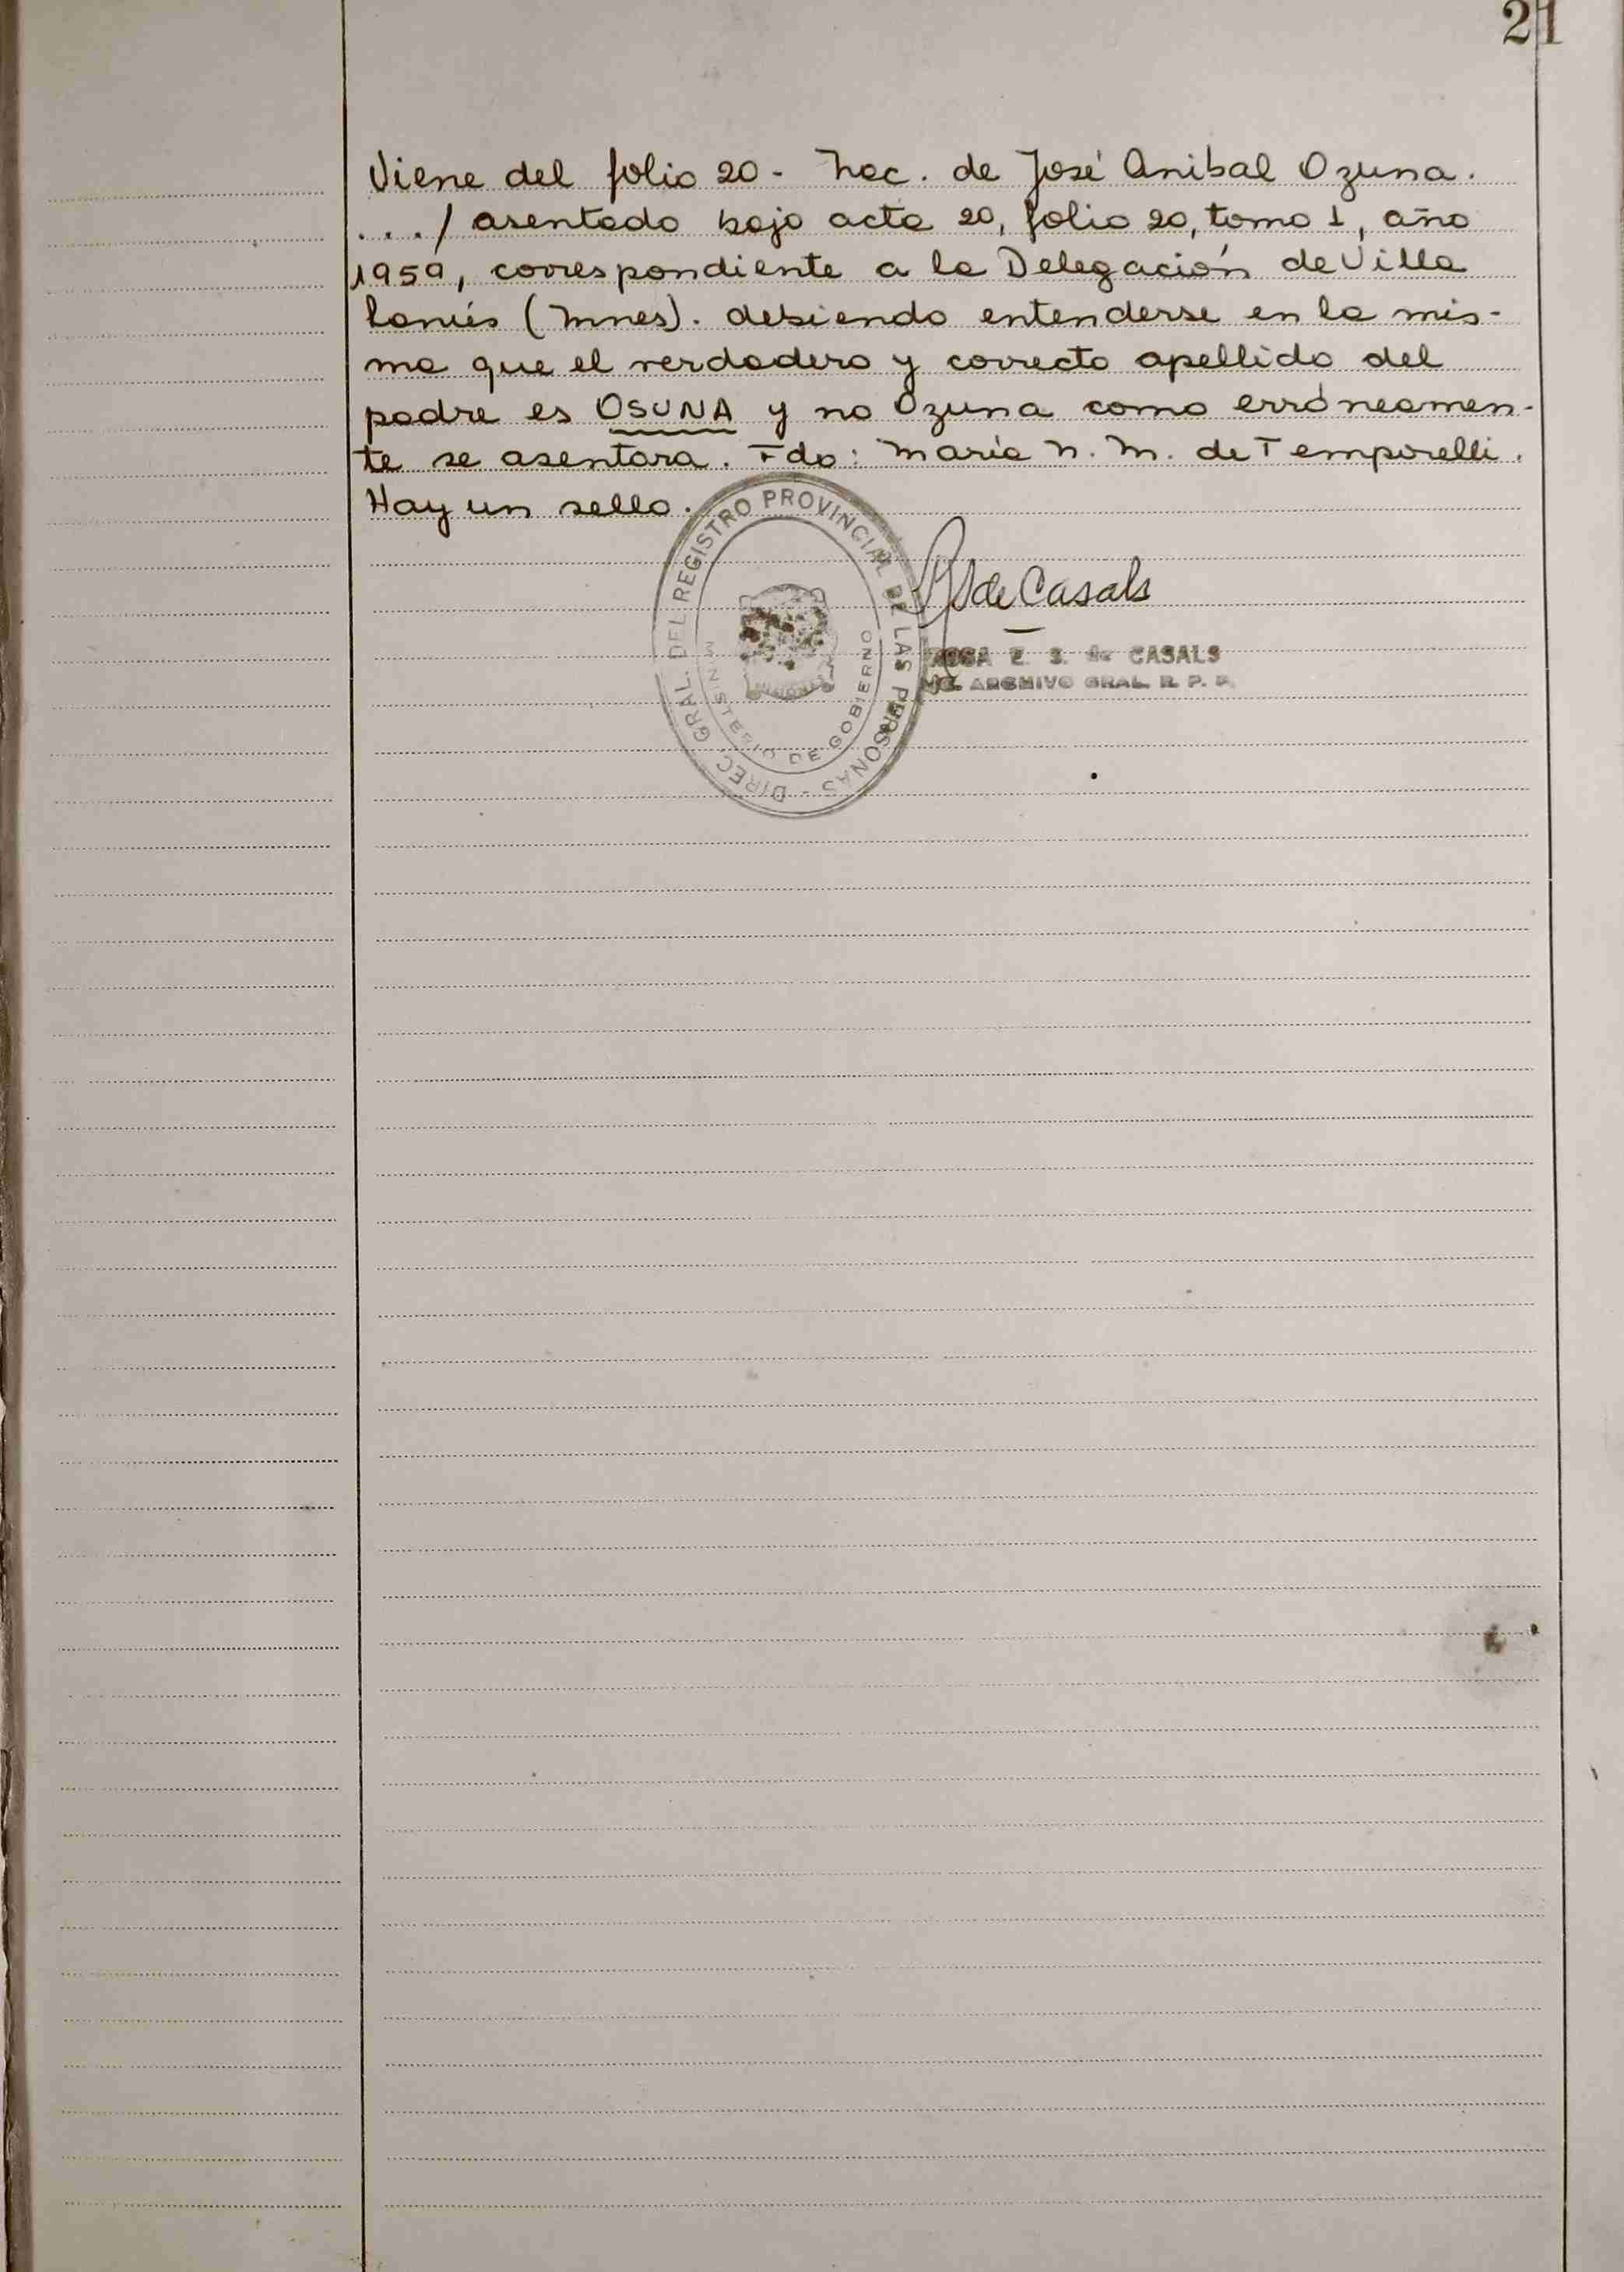 21
Viene del folio 20 - Nac. de José Anibal Ozuna.
. . . / asentada bajo acta 20, folio 20, tomo 1, año
1959, correspondiente a la Delegación de Villa
Lanús (Mnes). debiendo entenderse en la mis-
ma que el verdadero y correcto apellido del
padre es OSUNA y no Ozuna como erróneamen-
te se asentara. Fdo: María N. M. de Temporelli.
Hay un sello.
DIREC. GRAL. DEL REGISTRO PROVINCIAL DE LAS PERSONAS -
MINISTERIO DE GOBIERNO
de Casals
ROSA E. S. de CASALS
ARCHIVO GRAL. R. P. P.